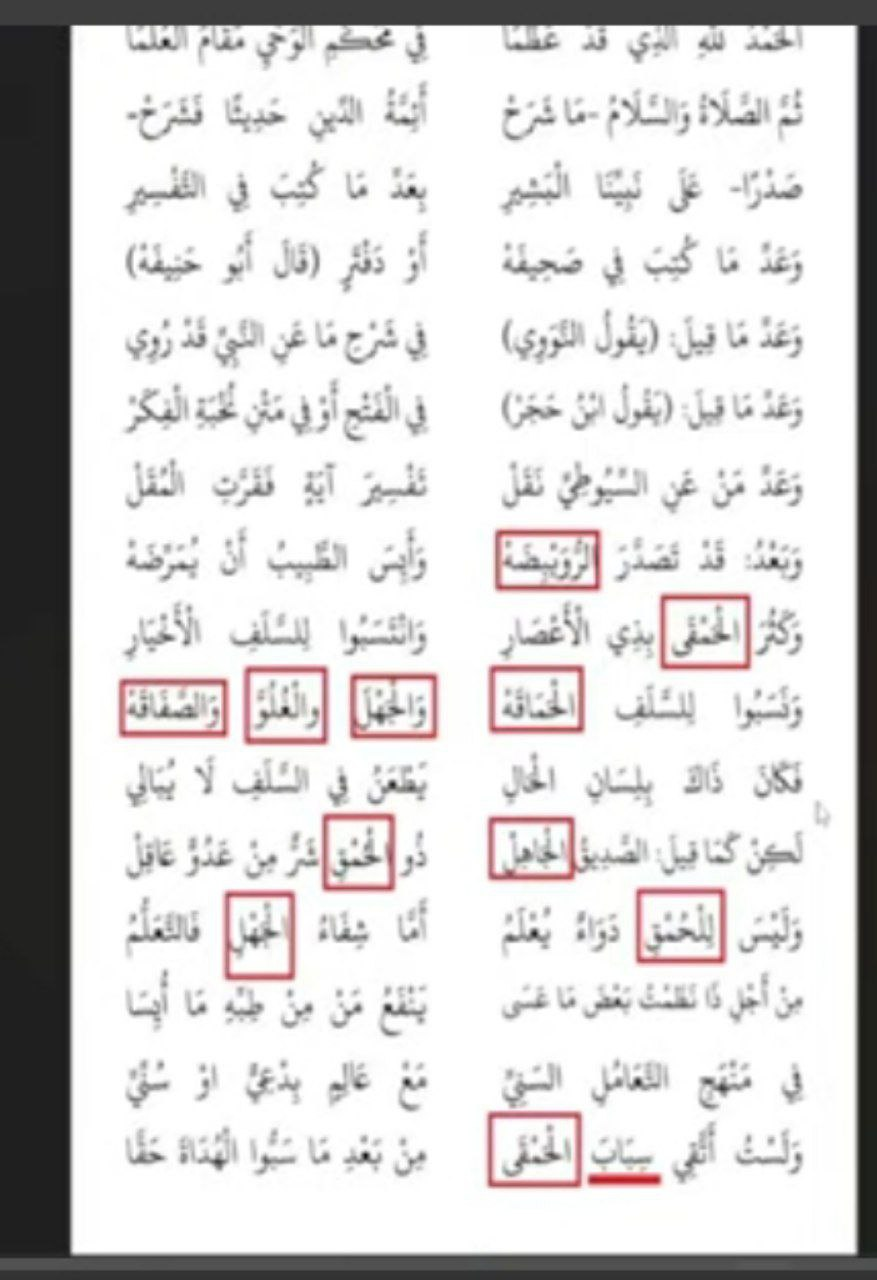 الْحَمْدُ لِلَّهِ الَّذِي قَدْ عَظَّمَا فِي مُحْكَمِ الْوَحْيِ مَقَامَ الْعُلَمَا
ثُمَّ الصَّلَاةُ وَالسَّلَامُ -مَا شَرَحْ أَئِمَّةُ الدِّينِ حَدِيثًا فَشَرَحْ-
صَدْرًا- عَلَى نَبِيِّنَا الْبَشِيرِ بِعَدِّ مَا كُتِبَ فِي التَّفْسِيرِ
وَعَدِّ مَا كُتِبَ فِي صَحِيفَهْ أَوْ دَفْتَرٍ (قَالَ أَبُو حَنِيفَهْ)
وَعَدِّ مَا قِيلَ: (يَقُولُ النَّوَوِي) فِي شَرْحِ مَا عَنِ النَّبِيِّ قَدْ رُوِي
وَعَدِّ مَا قِيلَ: (يَقُولُ ابْنُ حَجَرْ) فِي الْفَتْحِ أَوْ فِي مَتْنِ نُخْبَةِ الْفِكَرْ
وَعَدِّ مَنْ عَنِ السُّيُوطِيِّ نَقَلْ تَفْسِيرَ آيَةٍ فَقَرَّتِ الْمُقَلْ
وَبَعْدُ: قَدْ تَصَدَّرَ الرُّوَيْبِضَهْ وَأَيِسَ الطَّبِيبُ أَنْ يُمَرِّضَهْ
وَكَثُرَ الْحَمْقَى بِذِي الْأَعْصَارِ وَانْتَسَبُوا لِلسَّلَفِ الْأَخْيَارِ
وَنَسَبُوا لِلسَّلَفِ الْحَمَاقَهْ وَالْجَهْلَ والْغُلُوَّ وَالصَّفَاقَهْ
فَكَانَ ذَاكَ بِلِسَانِ الْحَالِ يَطْعَنُ فِي السَّلَفِ لَا يُبَالِي
لَكِنْ كَمَا قِيلَ: الصَّدِيقُ الْجَاهِلْ ذُو الْحُمْقِ شَرٌّ مِنْ عَدُوٍّ عَاقِلْ
وَلَيْسَ لِلْحُمْقِ دَوَاءٌ يُعْلَمُ أَمَّا شِفَاءُ الْجَهْلِ فَالتَّعَلُّمُ
مِنْ أَجْلِ ذَا نَظَمْتُ بَعْضَ مَا عَسَى يَنْفَعُ مَنْ مِنْ طِبِّهِ مَا أَيِسَا
فِي مَنْهَجِ التَّعَامُلِ السَّنِيِّ مَعْ عَالِمٍ بِدْعِيٍّ اوْ سُنِّيِّ
وَلَسْتُ أَتَّقِي سِبَابَ الْحَمْقَى مِنْ بَعْدِ مَا سَبُّوا الْهُدَاةَ حَقَّا